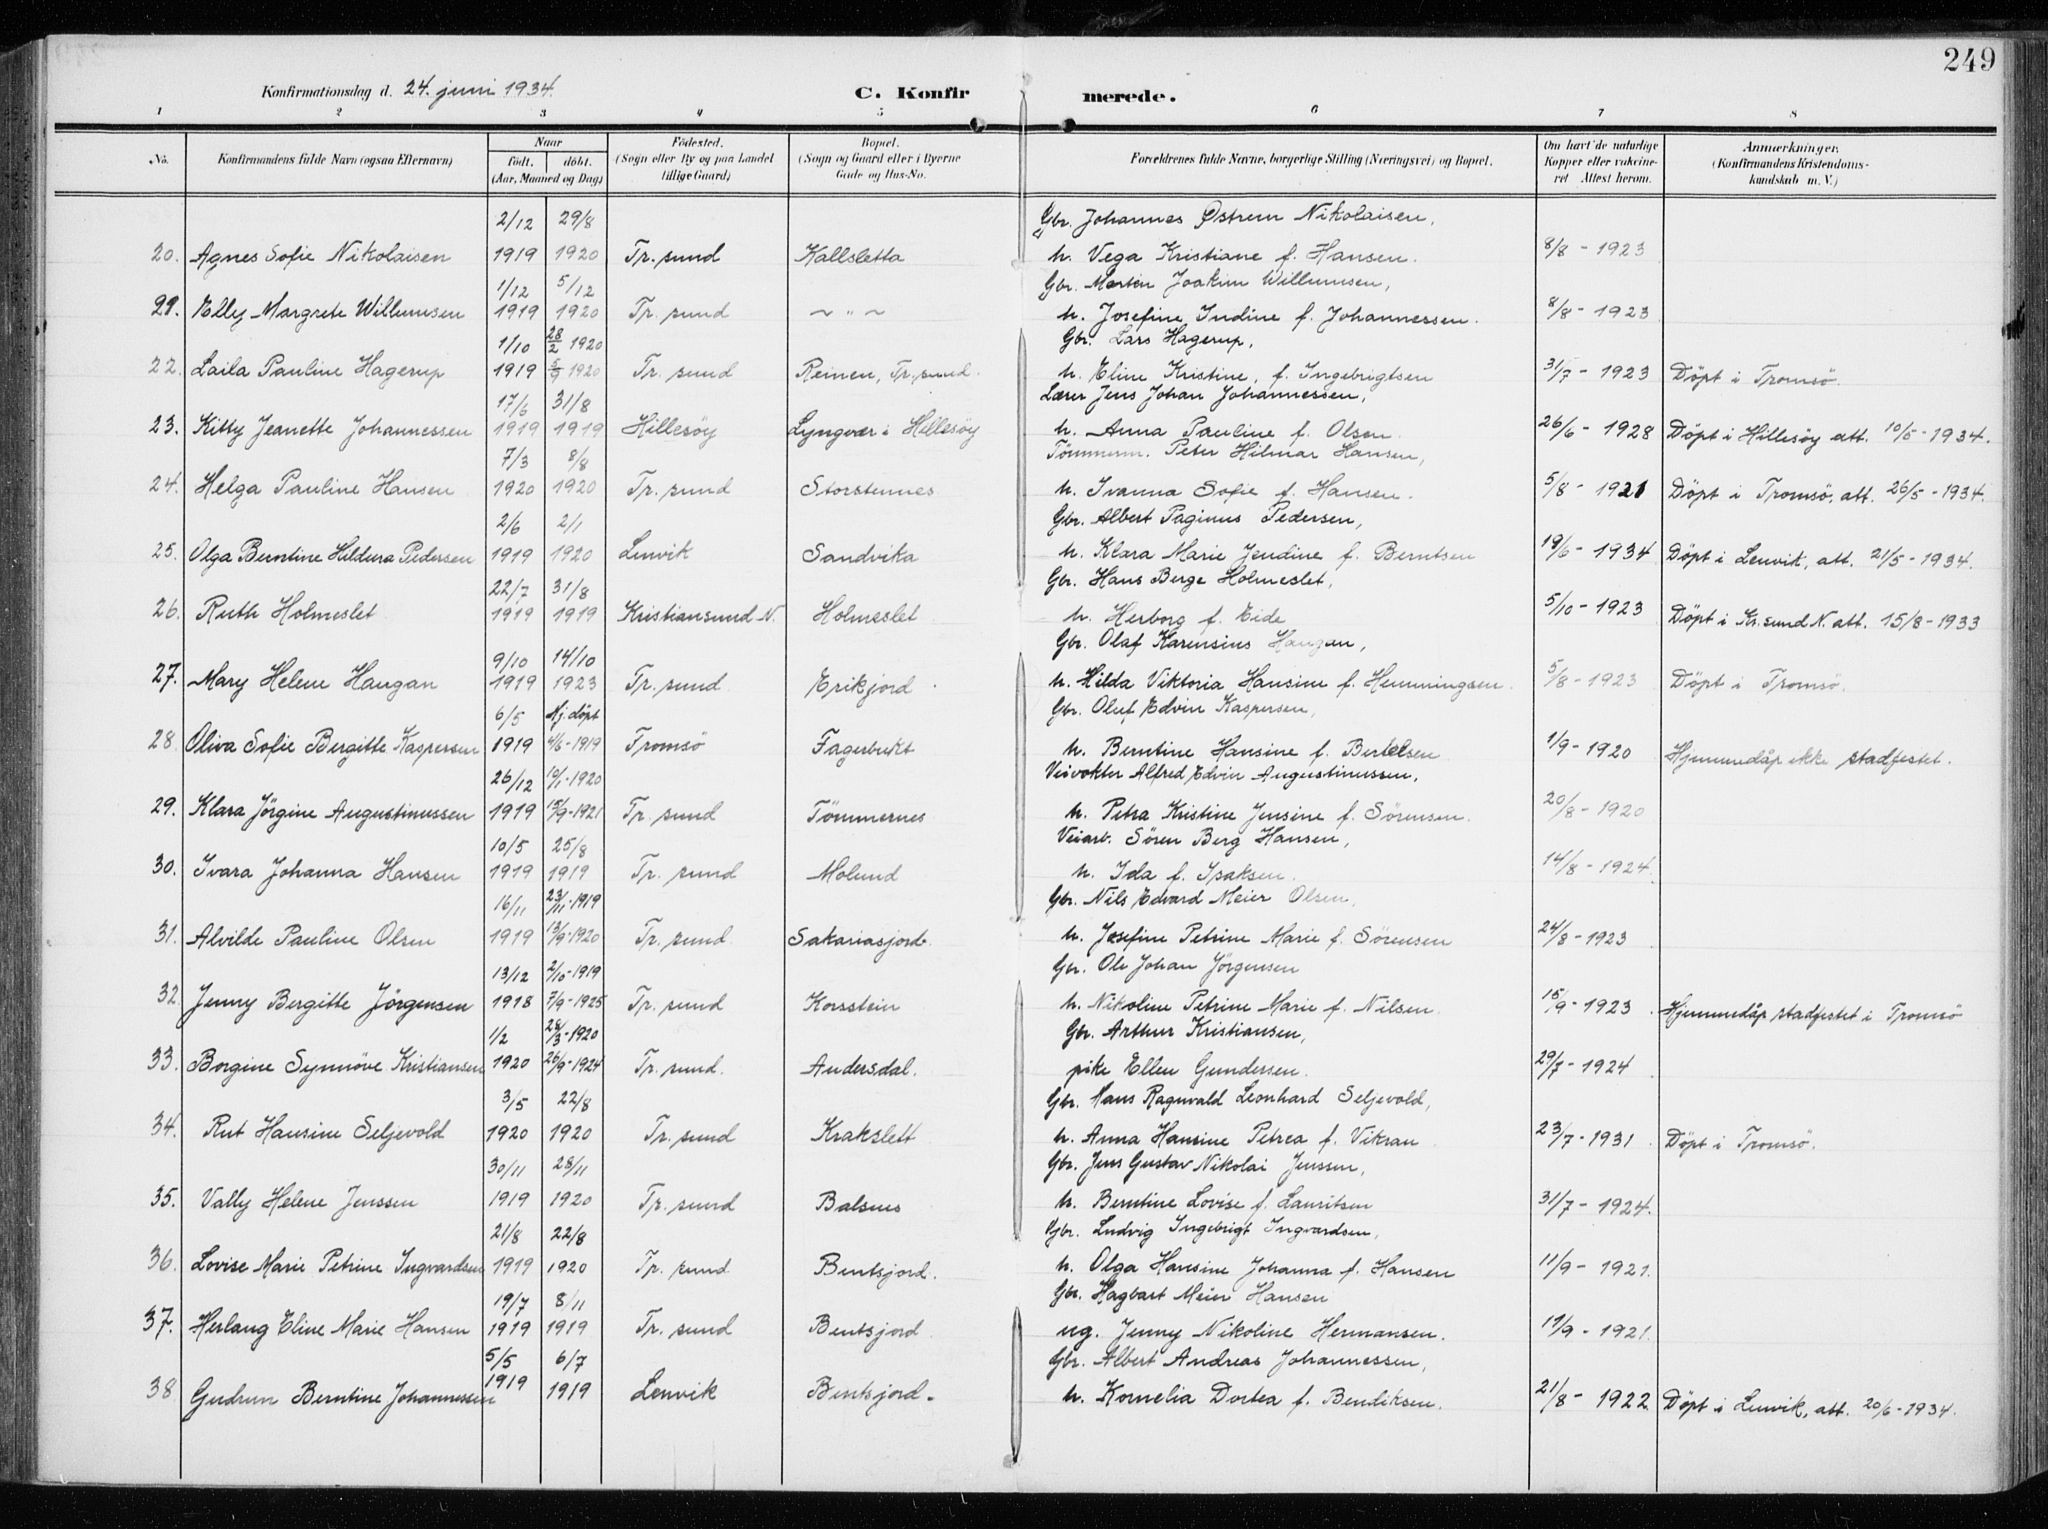 249
Konfirmationsdag d. 24. juni 1934. C. Konfirmerede.
1 2 3 4 5 6 7 8
No. Konfirmandens fulde Navn (ogsaa Efternavn) Naar födt. döbt. (Aar, Maaned og Dag) Födested. (Sogn eller By og paa Landet tillige Gaard) Bopæl. (Sogn og Gaard eller i Byerne Gade og Hus-No. Forældrenes fulde Navne, borgerlige Stilling (Næringsvei) og Bopæl. Om havt de naturlige Kopper eller vakcineret Attest herom. Anmærkninger. (Konfirmandens Kristendomskundskab m. V.)
2/12 29/8 Gbr. Johannes Østrem Nikolaisen,
20. Agnes Sofie Nikolaisen 1919 1920 Tr. sund Kallsletta h. Vega Kristiane f. Hansen. 8/8 - 1923
1/12 5/12 Gbr. Morten Joakim Willumsen,
21. Elly Margrete Willumsen 1919 1920 Tr. sund ~ " ~ h. Josefine Indine f. Johannessen. 8/8 - 1923
1/10 28/2 1920 Gbr. Lars Hagerup,
22. Laila Pauline Hagerup 1919 5/9 1920 Tr. sund Reinen, Tr. sund. h. Eline Kristine, f. Ingebrigtsen 31/7 - 1923 Döpt i Tromsö.
17/6 31/8 Lærer Jens Johan Johannessen,
23. Kitty Jeanette Johannessen 1919 1919 Hillesöy Lyngvær i Hillesöy h. Anna Pauline f. Olsen. 26/6 - 1928 Döpt i Hillesöy att. 10/5 - 1934.
7/3 8/8 Tömmerm. Peter Hilmar Hansen,
24. Helga Pauline Hansen 1920 1920 Tr. sund Storstennes h. Ivanna Sofie f. Hansen. 5/8 - 1921 Döpt i Tromsö, att. 26/5 - 1934.
2/6 2/1 Gbr. Albert Paginus Pedersen,
25. Olga Berntine Hildura Pedersen 1919 1920 Lenvik Sandvika h. Klara Marie Jendine f. Berntsen 19/6 - 1934 Döpt i Lenvik, att. 21/5 - 1934.
22/7 31/8 Gbr. Hans Berge Holmeslet,
26. Ruth Holmeslet 1919 1919 Kristiansund N. Holmeslet h. Herborg f. Eide 5/10 - 1923 Döpt i Kr. sund N. att. 15/8 - 1933
9/10 14/10 Gbr. Olaf Karensius Haugan,
27. Mary Helene Haugan 1919 1923 Tr. sund. Erikjord h. Hilda Viktoria Hansine f. Hemmingsen. 5/8 - 1923 Döpt i Tromsö.
6/5 Hj. döpt Gbr. Oluf Edvin Kaspersen,
28. Oliva Sofie Bergitte Kaspersen 1919 4/6 - 1919 Tromsö Fagerbukt h. Berntine Hansine f. Bertelsen. 1/9 - 1920 Hjemmedåp ikke stadfestet.
26/12 10/1 - 1920 Veivokter Alfred Edvin Augustinussen,
29. Klara Jörgine Augustinussen 1919 15/9 - 1921 Tr. sund Tömmernes h. Petra Kristine Jensine f. Sörensen. 20/8 - 1920
10/5 25/8 Veiarb. Sören Berg Hansen,
30. Ivara Johanna Hansen 1919 1919 Tr. sund Molund h. Ida f. Isaksen. 14/8 - 1924.
16/11 23/11 - 1919 Gbr. Nils Edvard Meier Olsen,
31. Alvilde Pauline Olsen 1919 13/9 - 1920 Tr. sund. Sakariasjord. h. Josefine Petrine Marie f. Sörensen 24/8 - 1923
13/12 2/10 - 1919 Gbr. Ole Johan Jörgensen
32. Jenny Bergitte Jörgensen 1918 7/9 - 1925 Tr. sund Korsstein h. Nikoline Petrine Marie f. Nilsen. 15/9 - 1923 Hjemmedåp stadfestet i Tromsö
1/2 28/3 - 1920 Gbr. Arthur Kristiansen,
33. Borgine Synnöve Kristiansen 1920 26/9 - 1924 Tr. sund. Andersdal. pike Ellen Gundersen. 29/7 - 1924
3/5 22/8 Gbr. Hans Ragnvald Leonhard Seljevold,
34. Rut Hansine Seljevold 1920 1920 Tr. sund Krakslett h. Anna Hansine Petrea f. Vikran 23/7 - 1931 Döpt i Tromsö.
30/11 28/11 Gbr. Jens Gustav Nikolai Jenssen,
35. Vally Helene Jenssen 1919 1920 Tr. sund Balsnes h. Berntine Lovise f. Lauritsen 31/7 - 1924.
21/8 22/8 Gbr. Ludvig Ingebrigt Ingvardsen,
36. Lovise Marie Petrine Ingvardsen 1919 1920 Tr. sund Bentsjord. h. Olga Hansine Johanna f. Hansen 11/9 - 1921.
19/7 8/11 Gbr. Hagbart Meier Hansen
37. Herlaug Eline Marie Hansen 1919 1919 Tr. sund Bentsjord. ug. Jenny Nikoline Hermansen. 19/9 - 1921.
5/5 6/7 Gbr. Albert Andreas Johannessen,
38 Gudrun Berntine Johannessen 1919 1919 Lenvik Bentsjord. h. Kornelia Dortea f. Bendiksen. 21/8 - 1922. Döpt i Lenvik, att. 20/6 - 1934.